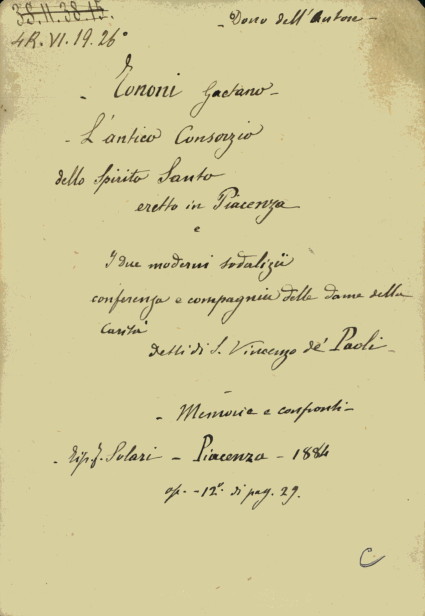 3S.II.38.15
- Dono dell'Autore -
4R.VI.19.26°
- Tononi Gaetano -
- L'antico Consorzio
dello Spirito Santo
eretto in Piacenza
e
I due moderni sodalizii
conferenza e compagnia delle dame della
Carità
detti di S. Vincenzo de' Paoli -
- Memorie e confronti -
- Tip. F. Solari - Piacenza - 1884
op. - 12° di pag. 29.
C